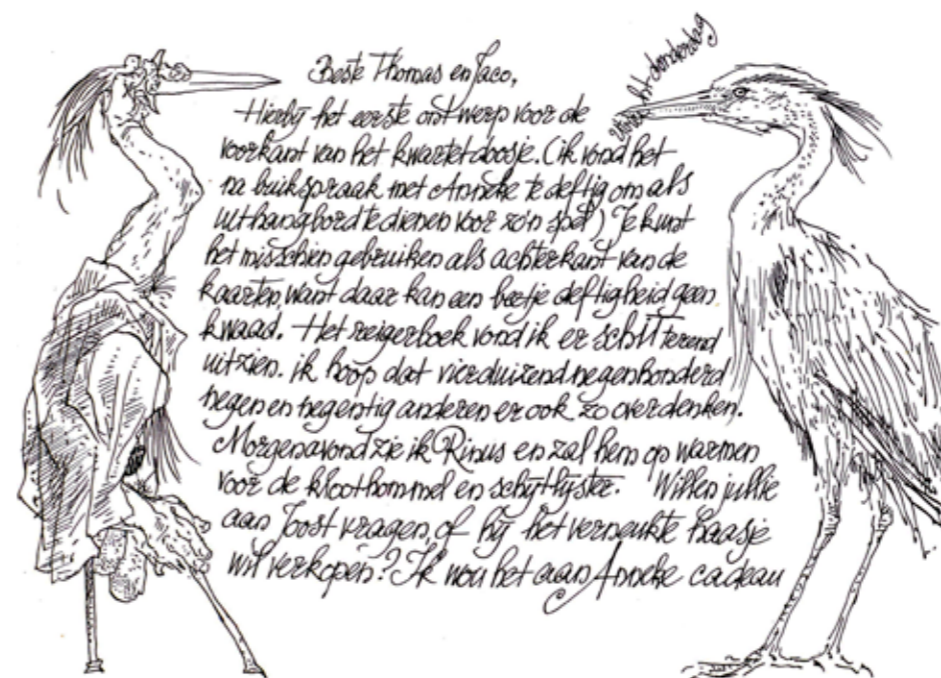 donderdag
Beste Thomas en Jaco,
Hierbij het eerste ontwerp voor de
voorkant van het kwartetdoosje. (ik vond het
na buikspraak met Anneke te deftig om als
uithangbord te dienen voor zo'n spel) Je kunt
het misschien gebruiken als achterkant van de
kaarten, want daar kan een beetje deftigheid geen
kwaad. Het reigerboek vond ik er schitterend
uitzien. ik hoop dat vierduizend negenhonderd
negen en negentig anderen er ook zo over denken.
Morgenavond zie ik Rinus en zal hem op warmen
voor de kloothommel en schijtlijster. Willen jullie
aan Joost vragen, of hij het verneukte haasje
wil verkopen? Ik wou het aan Anneke cadeau